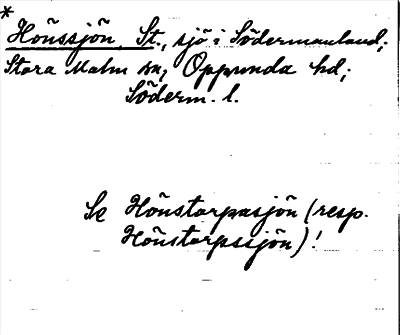 *
Hönssjön, St., sjö i Södermanland;
Stora Malm sn, Oppunda hd;
Söderm. l.
Se Hönstorpasjön (resp.
Hönstorpssjön)!